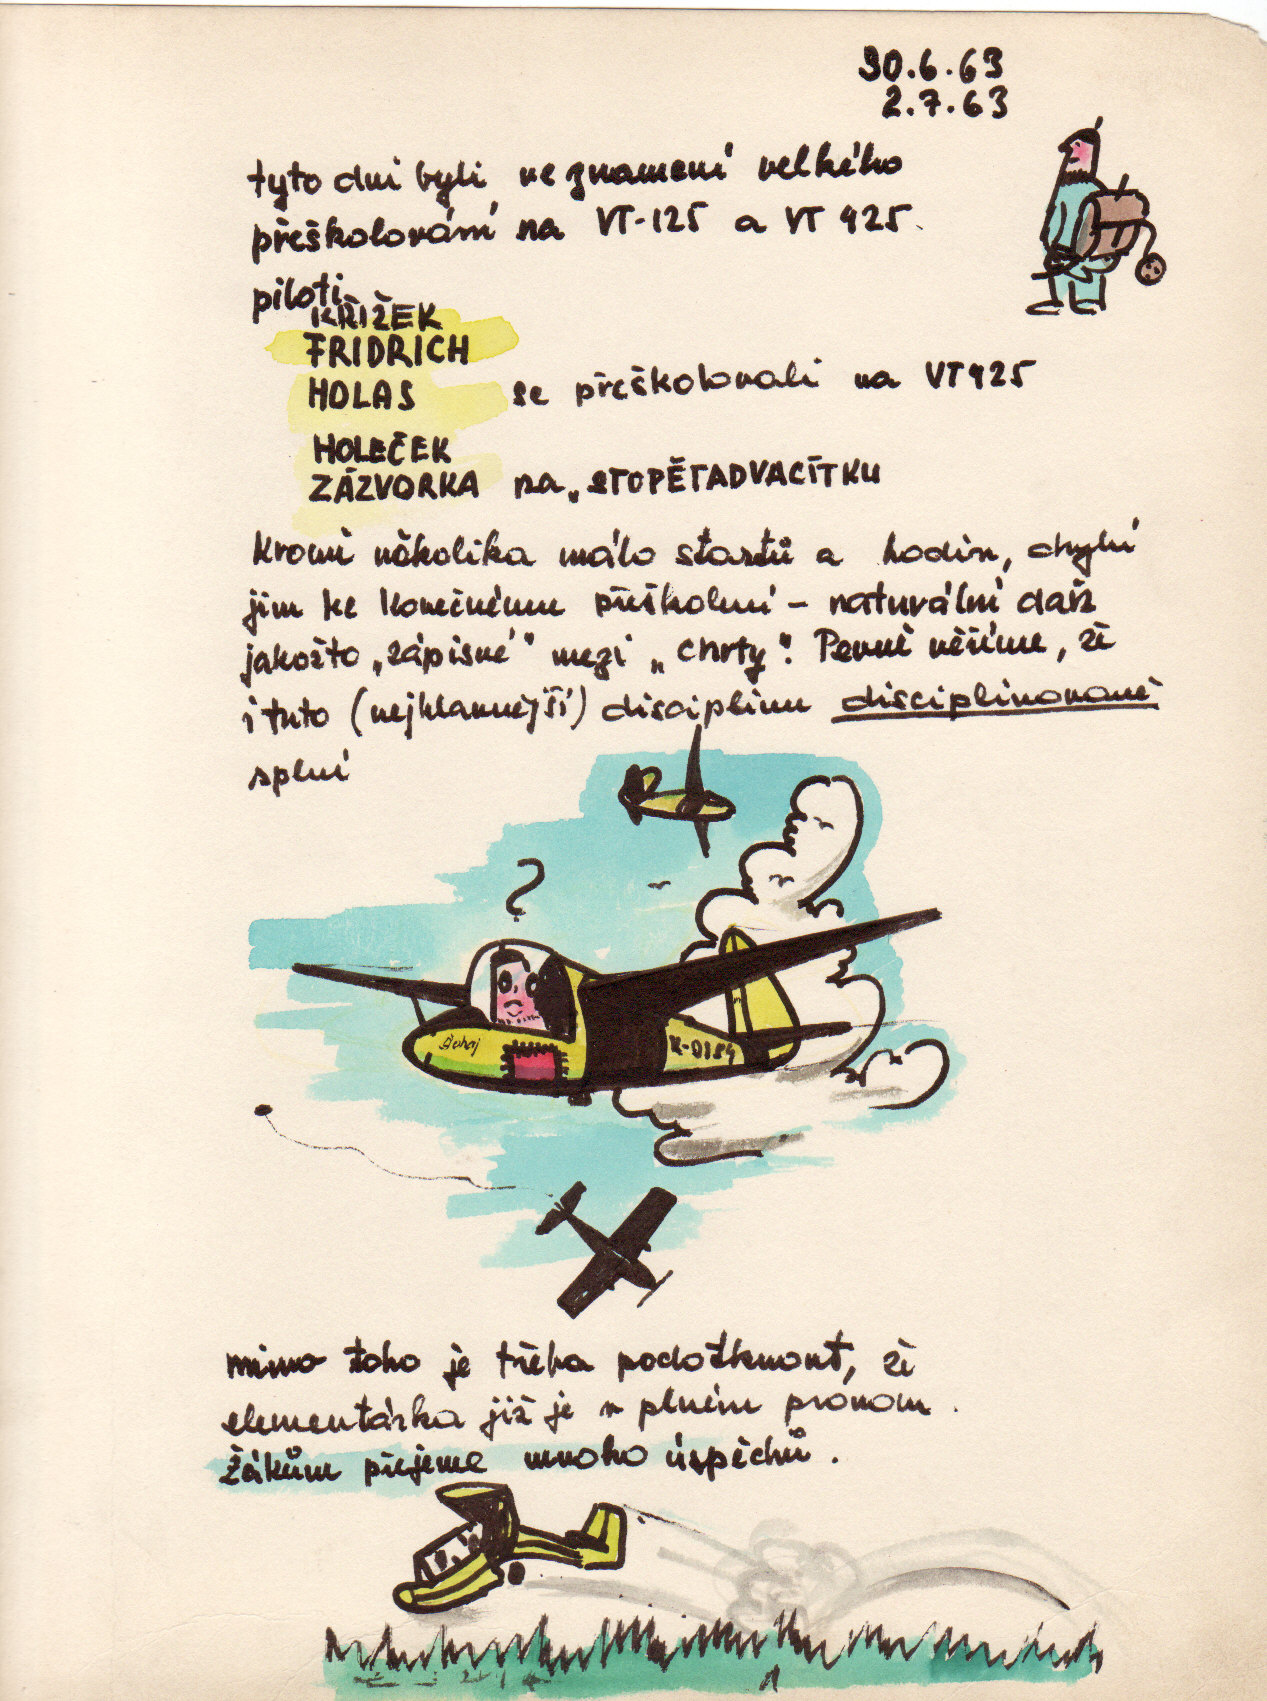 30.6.63
2.7.63
tyto dni byli ve znamení velkého
přeškolování na VT-125 a VT 425.
piloti
KŘÍŽEK
FRIDRICH
HOLAS se přeškolovali na VT425
HOLEČEK
ZÁZVORKA na „STOPĚTADVACÍTKU
Kromě několika málo startů a hodin, chybí
jim ke konečnému přeškolení – naturální daň
jakožto „zápisné" mezi „chrty". Pevně věříme, že
i tuto (nejhlavnější) disciplinu disciplinovaně
splní
?
Šohaj
K-0184
mimo toho je třeba podotknout, že
elementárka již je v plném proudu.
Žákům přejeme mnoho úspěchů.